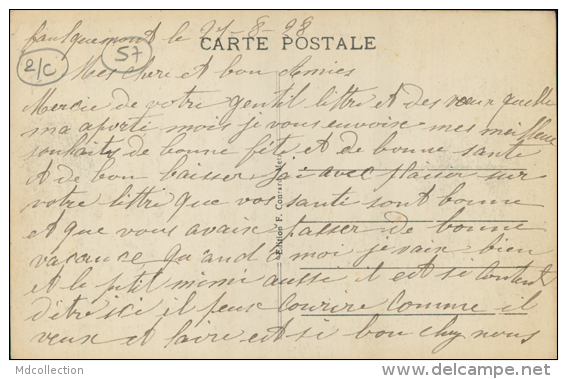 faulquemont le 27-8-28
CARTE POSTALE
2/C
57
Mes chere et bon Amies
Mercie de votre gentil littre et des veux quelle
ma aporté mois je vous envoise mes meilleur
souhaits de bonne féte et de bonne sante
et de bon baisser jai avec plaisir sur
votre littre que vos santi sont bonne
et que vous avais passer de bonne
vacance quand à moi je suis bien
et le ptit mimi aussi il est si contant
d'étre ici il peux courire comme il
veux et laire est si bon chez nous
Edition F.
Mdcollection
www.delcampe.net